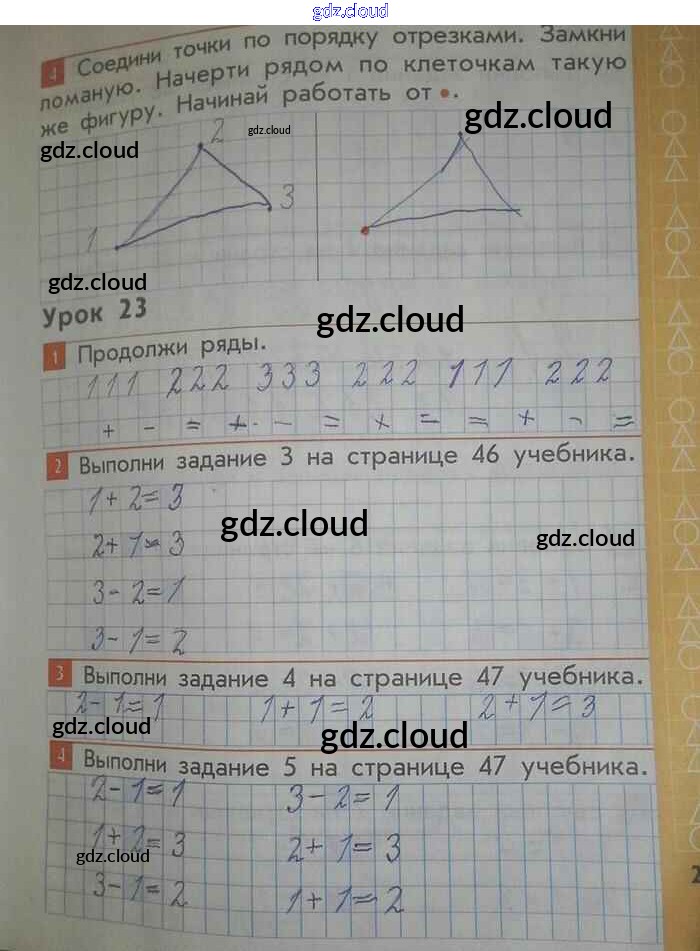 gdz.cloud
4 Соедини точки по порядку отрезками. Замкни
ломаную. Начерти рядом по клеточкам такую
же фигуру. Начинай работать от •.
gdz.cloud
gdz.cloud
gdz.cloud
2
3
1
gdz.cloud
Урок 23
gdz.cloud
1 Продолжи ряды.
111 222 333 222 111 222
+ - = + - = + = = + - =
2 Выполни задание 3 на странице 46 учебника.
1 + 2 = 3
gdz.cloud
2 + 1 = 3
gdz.cloud
3 - 2 = 1
3 - 1 = 2
3 Выполни задание 4 на странице 47 учебника.
2 - 1 = 1 1 + 1 = 2 2 + 1 = 3
gdz.cloud
gdz.cloud
4 Выполни задание 5 на странице 47 учебника.
2 - 1 = 1 3 - 2 = 1
1 + 2 = 3 2 + 1 = 3
gdz.cloud
3 - 1 = 2 1 + 1 = 2
2